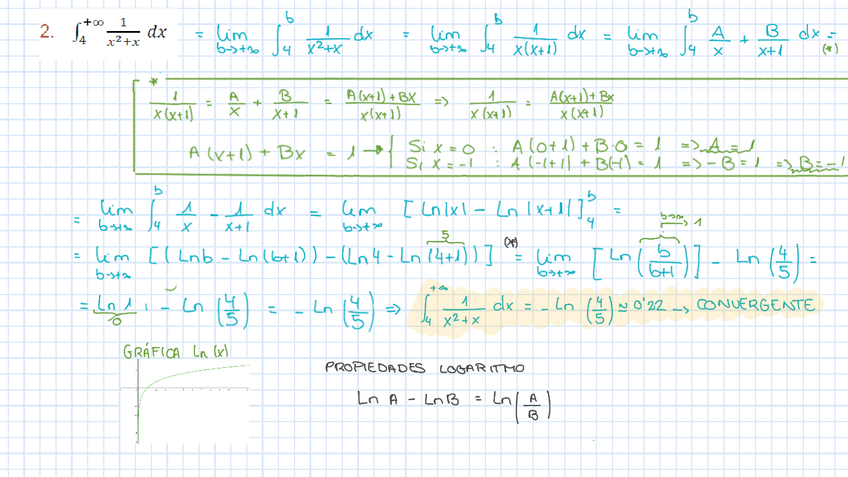 2. ∫₄^{+∞} 1/(x²+x) dx = lim_{b→+∞} ∫₄^b 1/(x²+x) dx = lim_{b→+∞} ∫₄^b 1/(x(x+1)) dx = lim_{b→+∞} ∫₄^b A/x + B/(x+1) dx = (*)
* 1/(x(x+1)) = A/x + B/(x+1) = (A(x+1)+BX)/(x(x+1)) => 1/(x(x+1)) = (A(x+1)+Bx)/(x(x+1))
A(x+1) + Bx = 1 → { Si x=0 : A(0+1) + B·0 = 1 => A=1
Si x=-1 : A(-1+1) + B(-1) = 1 => -B=1 => B=-1
= lim_{b→+∞} ∫₄^b 1/x - 1/(x+1) dx = lim_{b→+∞} [Ln|x| - Ln|x+1|]₄^b =
5 (*) b→∞ → 1
= lim_{b→+∞} [(Lnb - Ln(b+1)) - (Ln4 - Ln(4+1))] = lim_{b→+∞} [Ln(b/(b+1))] - Ln(4/5) =
= Ln 1 - Ln(4/5) = - Ln(4/5) => ∫₄^{+∞} 1/(x²+x) dx = - Ln(4/5) ≈ 0'22 → CONVERGENTE
0
GRÁFICA Ln(x)
PROPIEDADES LOGARITMO
Ln A - LnB = Ln(A/B)